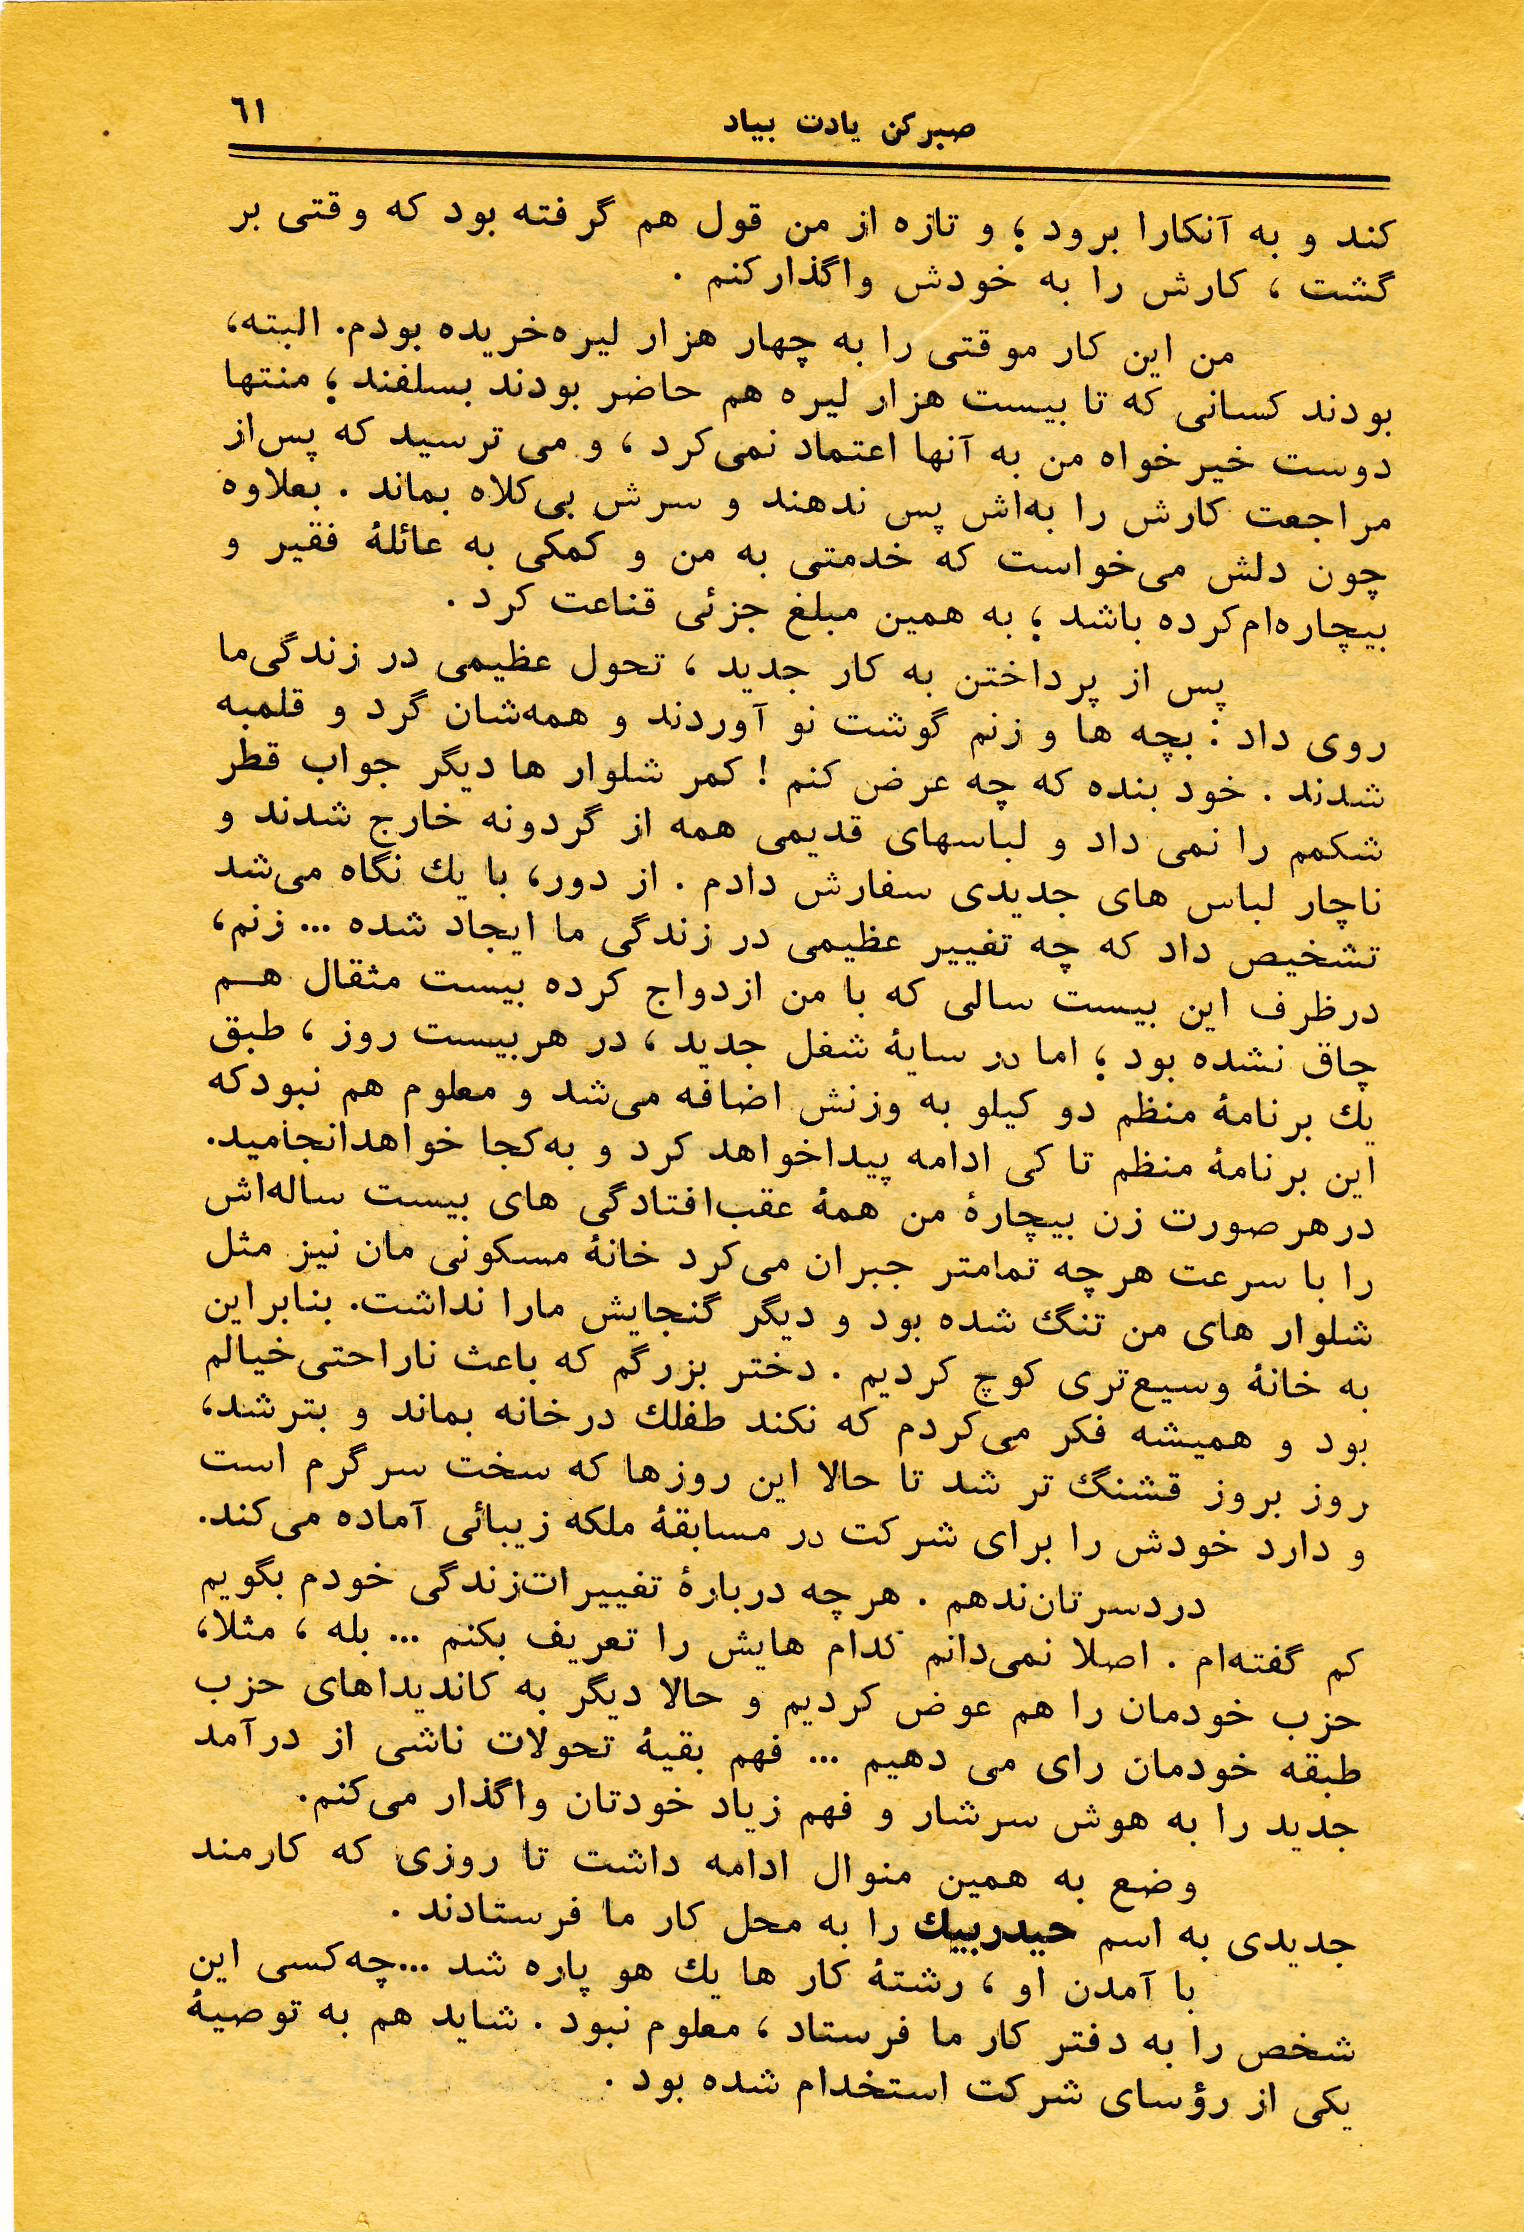 صبرکن یادت بیاد
٦١
کند و به آنکارا برود ؛ و تازه از من قول هم گرفته بود که وقتی بر
گشت ، کارش را به خودش واگذارکنم .
من این کار موقتی را به چهار هزار لیره‌خریده بودم. البته،
بودند کسانی که تا بیست هزار لیره هم حاضر بودند بسلفند ؛ منتها
دوست خیرخواه من به آنها اعتماد نمی‌کرد ، و می ترسید که پس‌از
مراجعت کارش را به‌اش پس ندهند و سرش بی‌کلاه بماند . بعلاوه
چون دلش می‌خواست که خدمتی به من و کمکی به عائلهٔ فقیر و
بیچاره‌ام‌کرده باشد ؛ به همین مبلغ جزئی قناعت کرد .
پس از پرداختن به کار جدید ، تحول عظیمی در زندگی‌ما
روی داد : بچه ها و زنم گوشت نو آوردند و همه‌شان گرد و قلمبه
شدند . خود بنده که چه عرض کنم ! کمر شلوار ها دیگر جواب قطر
شکمم را نمی داد و لباسهای قدیمی همه از گردونه خارج شدند و
ناچار لباس های جدیدی سفارش دادم . از دور، با یك نگاه می‌شد
تشخیص داد که چه تغییر عظیمی در زندگی ما ایجاد شده ... زنم،
درظرف این بیست سالی که با من ازدواج کرده بیست مثقال هـم
چاق نشده بود ؛ اما در سایهٔ شغل جدید ، در هربیست روز ، طبق
یك برنامهٔ منظم دو کیلو به وزنش اضافه می‌شد و معلوم هم نبودکه
این برنامهٔ منظم تا کی ادامه پیداخواهد کرد و به‌کجا خواهدانجامید.
درهرصورت زن بیچارهٔ من همهٔ عقب‌افتادگی های بیست ساله‌اش
را با سرعت هرچه تمامتر جبران می‌کرد خانهٔ مسکونی مان نیز مثل
شلوار های من تنگ شده بود و دیگر گنجایش مارا نداشت. بنابراین
به خانهٔ وسیع‌تری کوچ کردیم . دختر بزرگم که باعث ناراحتی‌خیالم
بود و همیشه فکر می‌کردم که نکند طفلك درخانه بماند و بترشد،
روز بروز قشنگ تر شد تا حالا این روزها که سخت سرگرم است
و دارد خودش را برای شرکت در مسابقهٔ ملکه زیبائی آماده می‌کند.
دردسرتان‌ندهم . هرچه دربارهٔ تغییرات‌زندگی خودم بگویم
کم گفته‌ام . اصلا نمی‌دانم کدام هایش را تعریف بکنم ... بله ، مثلا،
حزب خودمان را هم عوض کردیم و حالا دیگر به کاندیداهای حزب
طبقه خودمان رای می دهیم ... فهم بقیهٔ تحولات ناشی از درآمد
جدید را به هوش سرشار و فهم زیاد خودتان واگذار می‌کنم.
وضع به همین منوال ادامه داشت تا روزی که کارمند
جدیدی به اسم حیدربیك را به محل کار ما فرستادند .
با آمدن او ، رشتهٔ کار ها یك هو پاره شد ...چه‌کسی این
شخص را به دفتر کار ما فرستاد ، معلوم نبود . شاید هم به توصیهٔ
یکی از رؤسای شرکت استخدام شده بود .